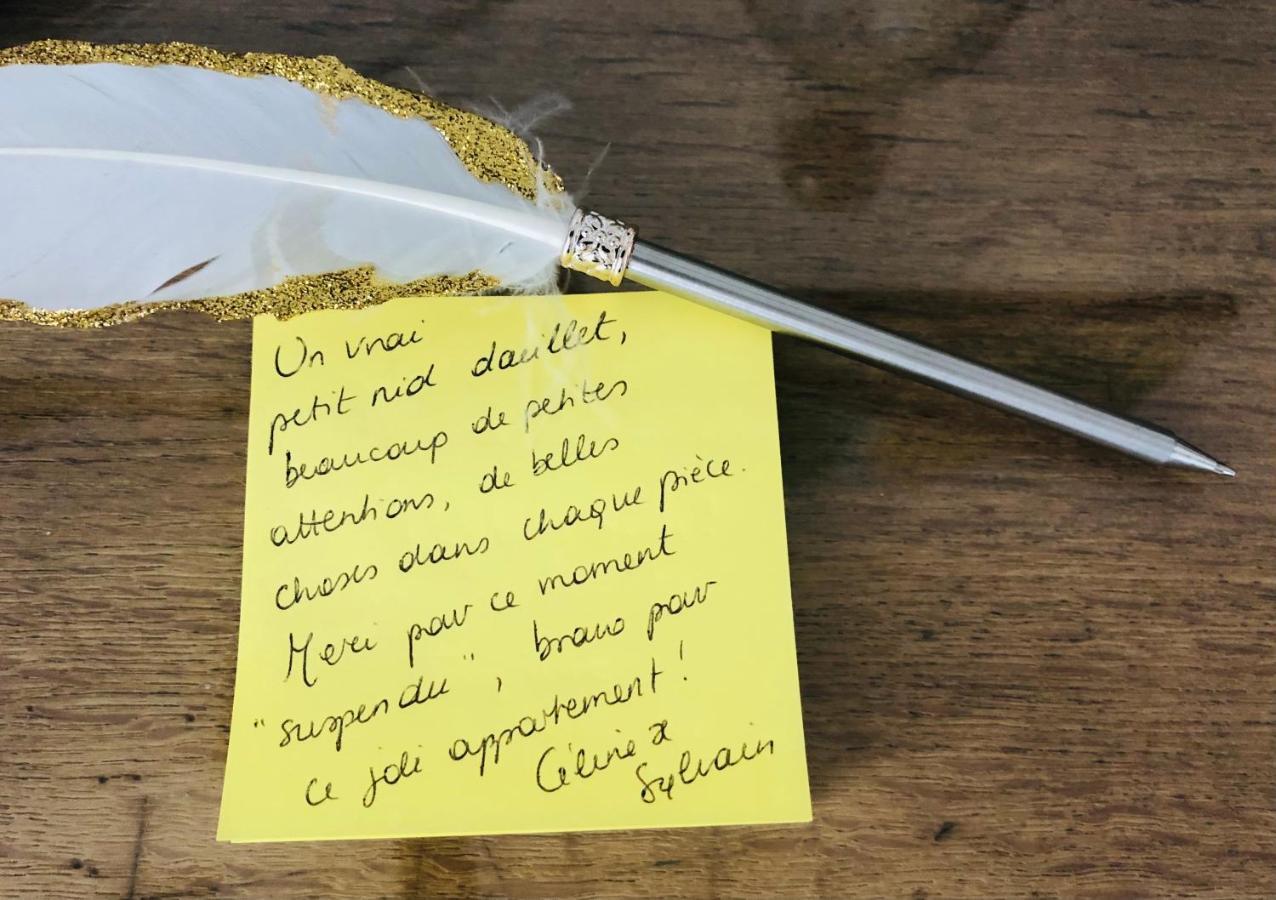 Un vrai
petit nid douillet,
beaucoup de petites
attentions, de belles
choses dans chaque pièce.
Merci pour ce moment
"suspendu", bravo pour
ce joli appartement !
Céline &
Sylvain